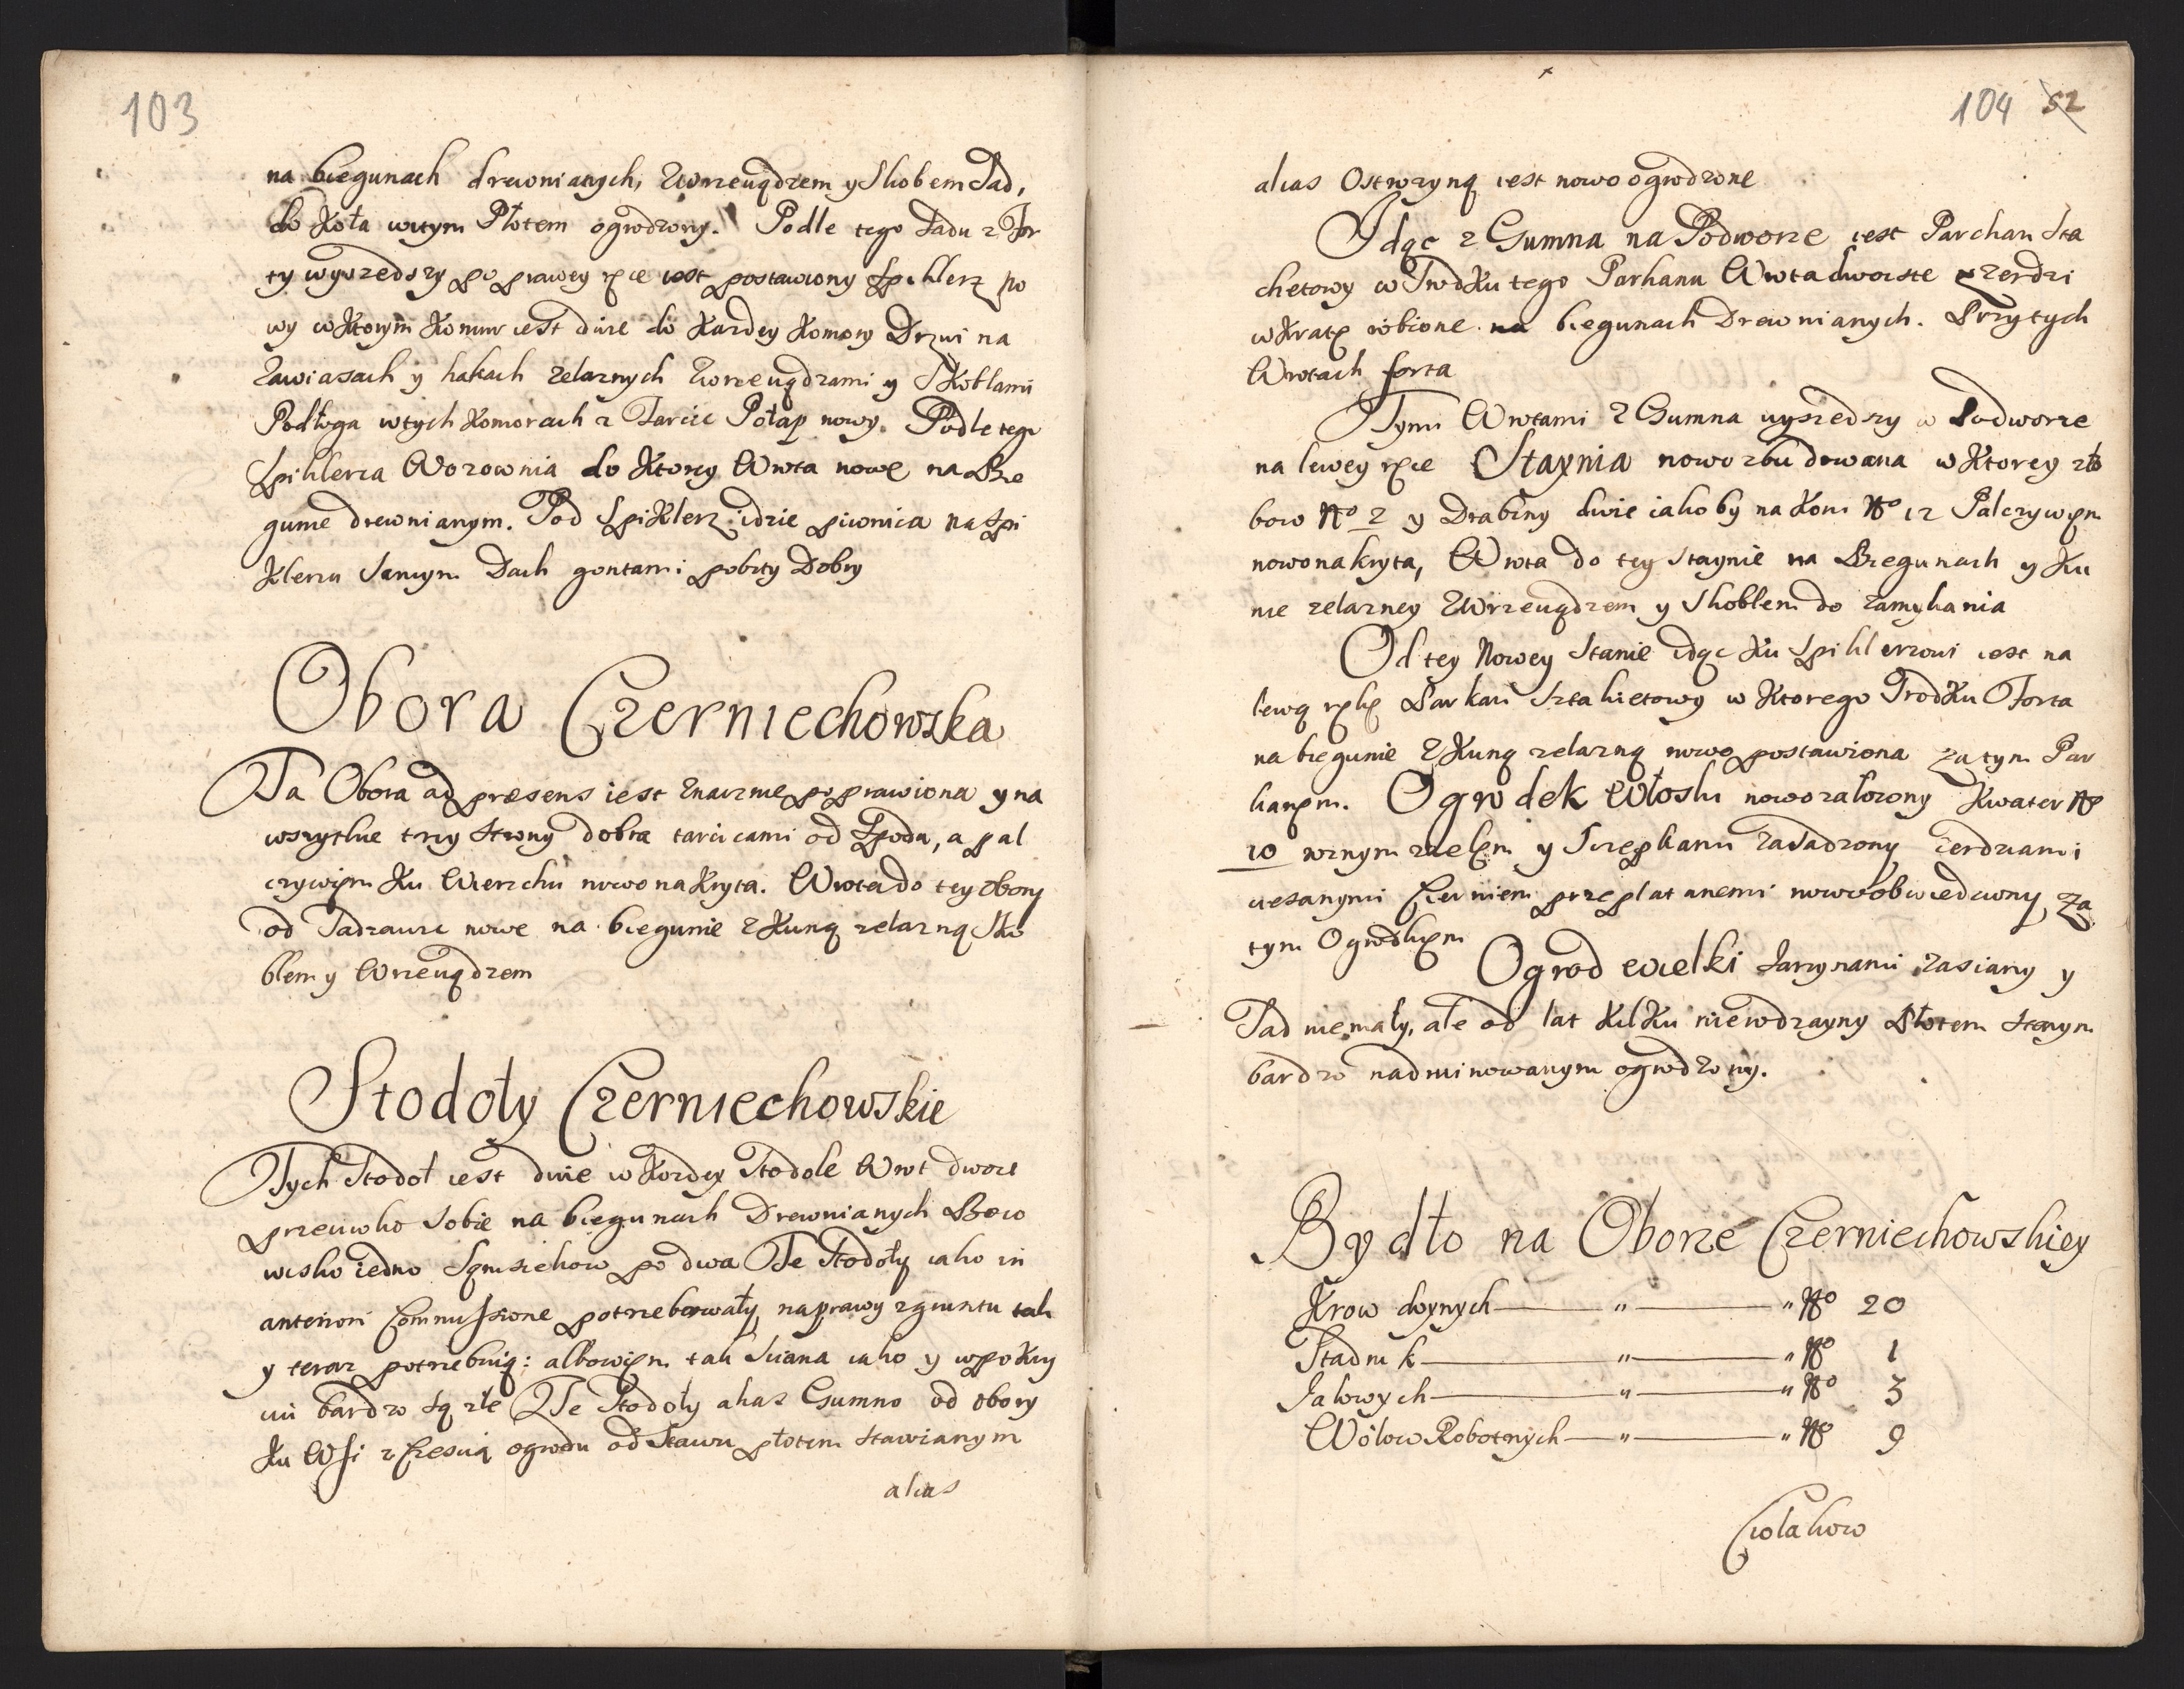 103
na biegunach drewnianych, zwrzeuqdzem y Skobem Sad,
do Koła wtym Płotem ogrodzony. Podle tego Sadu z For
ty wyszedszy po prawey ręce iest postawiony Spihlerz no
wy w Ktorym Komor iest dwie do Kazdey Komory Drzwi na
Zawiasach y hakach zelaznych zwrzeuqdzami y Skoblami
Podłoga wtych Komorach z Tarcic Połap nowy. Podle tego
Spihlerza Wozownia do Ktorey Wrota nowe na Bie
gunie drewnianym. Pod Spiklerz idzie piwnica na Spi
klerzu Samym Dach gontami pobity Dobry
Obora Czerniechowska
Ta Obora ad præsens iest znacznie poprawiona y na
wszytkie trzy Strony dobra tarcicami od Spodu, a pal
czywęm Ku Wierzchu nowo nakryta. Wrota do tey obory
od Sadzawi nowe na biegunie z Kunq zelaznq Sko
blem y Wrzeuqdzem
Stodoły Czerniechowskie
Tych Stodoł iest dwie w Kozdey Stodole Wrot dwoie
przeciwko Sobie na biegunach Drewnianych Boio
wisko iedno Sqmsiekow po dwa Te Stodoły iako in
anteriori Commissione potrzebowały naprawy zgruntu tak
y teraz potrzebuiq: albowięm tak Sciana iako y wpokry
ciu bardzo sq złe Te Stodoły alias Gumno od obory
Ku Wsi z Częsciq ogrodu od Stawu płotem Stawianym
alias
104 52
alias Ostrozynq iest nowo ogrodzone
Idqc z Gumna na Podworze iest Parchan Sta
chetowy w Srodku tego Parhanu Wrota dwoiste z zerdzi
w Kratę robione na biegunach Drewnianych. Przy tych
Wrotach forta
Tymi Wrotami z Gumna wyszedszy w Podworze
na lewey ręce Stajnia nowo zbudowana w Ktorey zło
bow Nro 2 y Drabiny dwie iakoby na Koni Nro 12 Palczywęm
nowo nakryta, Wrota do tey Staynie na Biegunach y Ku
nie zelazney zwrzeuqdzem y Skoblem do zamykania
Od tey Nowey Stanie idqc Ku Spihlerzowi iest na
lewq rękę Parkan Sztakietowy w Ktorego Srodku Forta
na biegunie z Kunq zelaznq nowo postawiona za tym Par
kanęm. Ogrodek Włoski nowo załozony Kwater Nro
10 roznym zielęm y Szczepkami zasadzony zerdziami
ciesanymi Cierniem przeplatanemi nowo obwiedziony, za
tym Ogrodkięm
Ogrod wielki Jarzynami zasiany y
Sad niemały, ale od lat Kilku nierodzayny Płotem Starym
bardzo nadruinowanym ogrodzony.
Bydło na Oborze Czerniechowskiey
Krow doynych — " — " Nro 20
Stadnik — " — " Nro 1
Jałowych — " — " Nro 3
Wołow Robotnych — " — " Nro 9
Ciołakow